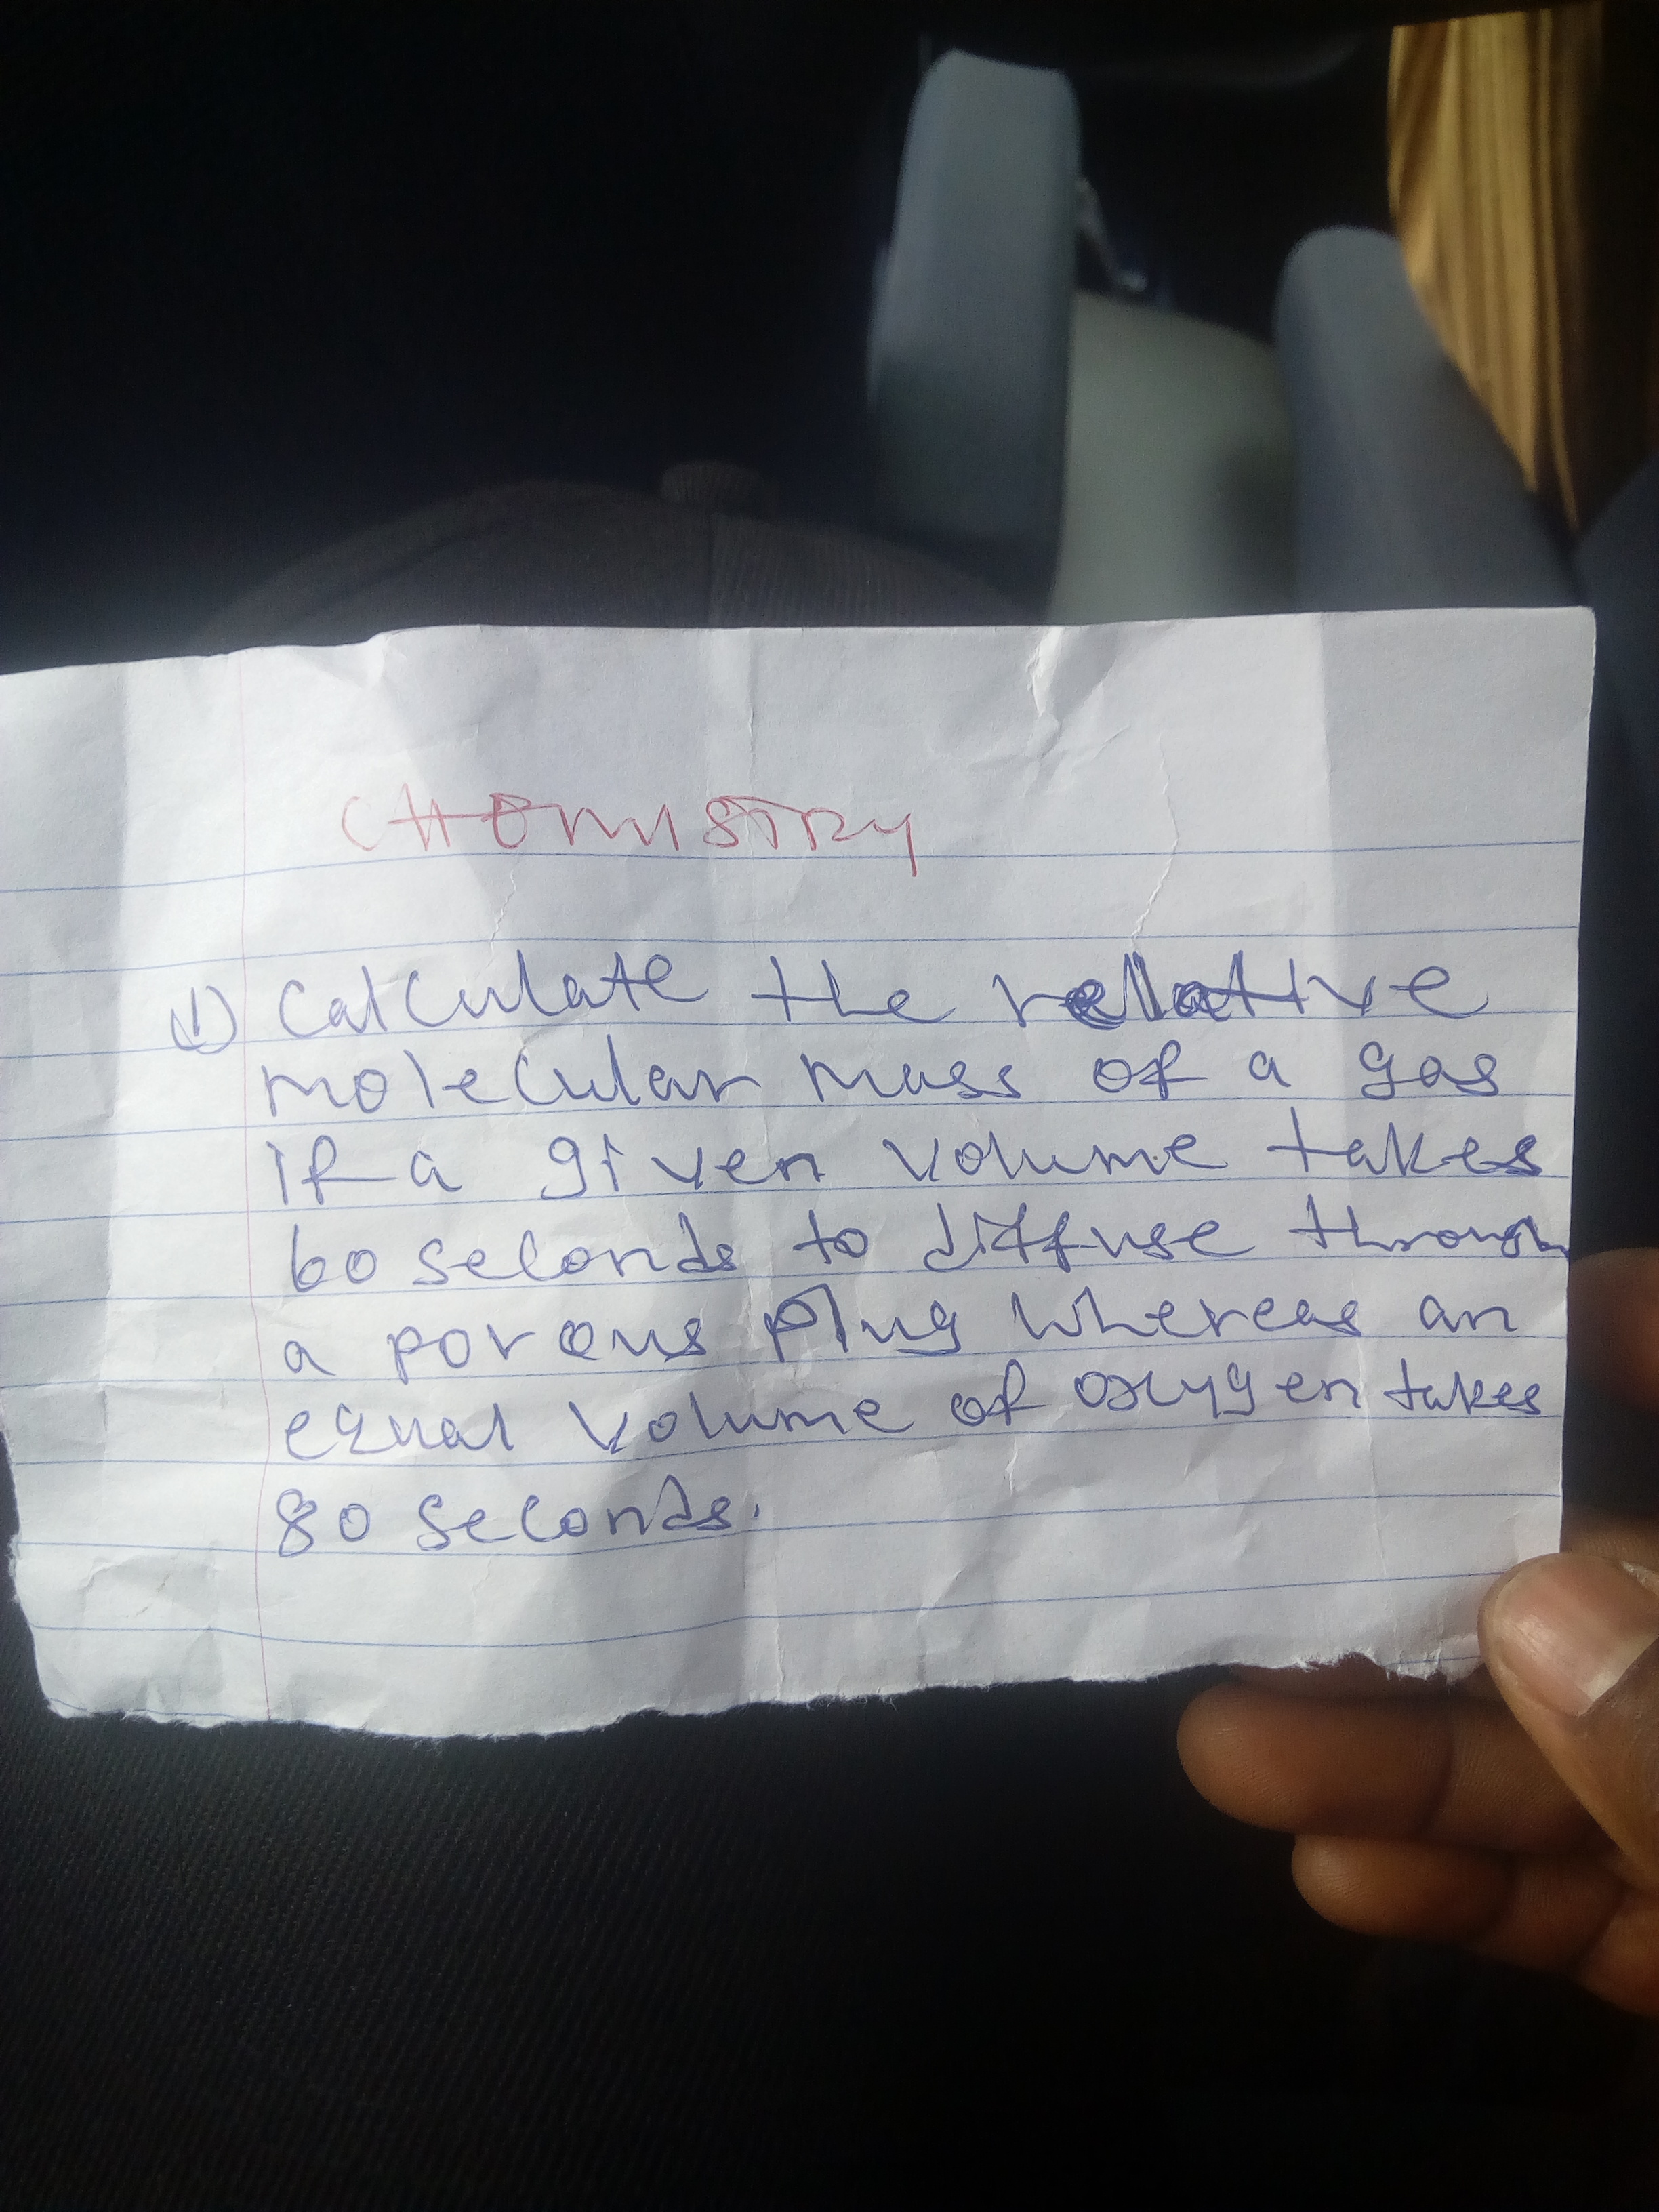 CHEMISTRY
1) Calculate the relative
molecular mass of a gas
if a given volume takes
60 seconds to diffuse through
a porous plug whereas an
equal volume of oxygen takes
80 seconds.